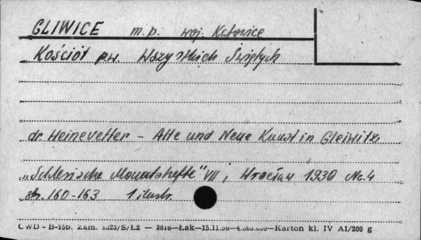 GLIWICE m.p. woj. Katowice
Kościół pw. Wszystkich Świętych
dr. Heinevetter - Alte und Neue Kunst in Gleiwitz
„Schlesische Monatshefte" VII, Wrocław 1930 No. 4
str. 160-163 1 ilustr.
CWD - B-150, Zam. /Łz — Łak—15.11.56— —Karton kl. IV A1/200 g